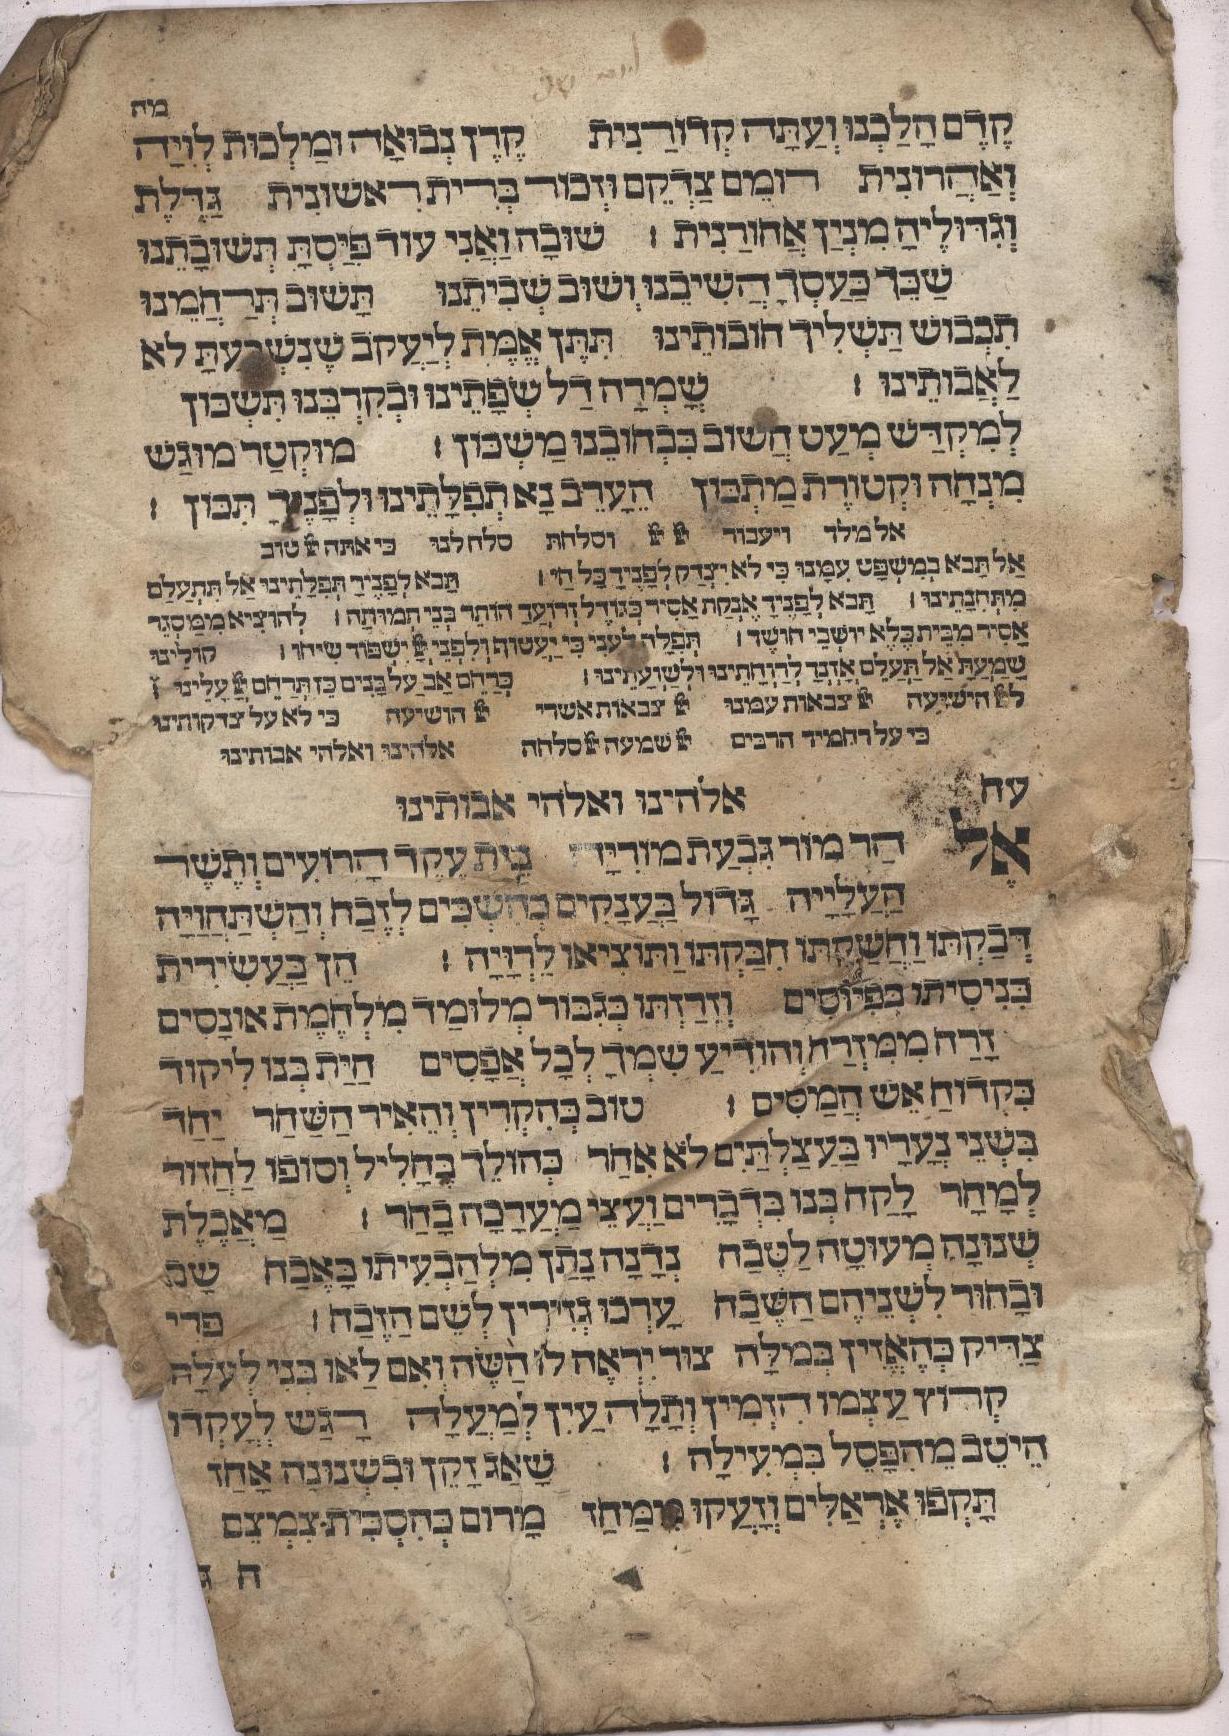 מה
קֶדֶם הָלַכְנוּ וְעַתָּה קְדוֹרַנִּית קֶרֶן נְבוּאָה וּמַלְכוּת לְוִיָּה
וְאַהֲרוֹנִית רוֹמֵם צַדְּקֵם וּזְכוֹר בְּרִית רִאשׁוֹנִית גַּדֶּלֶת
וְגִדּוּלֶיהָ מִנְיַן אֲחוֹרַנִּית : שׁוּבָה וַאֲנִי עוֹד פִּיַּסְתָּ תְּשׁוּבָתֵנוּ
שַׁכֵּךְ כַּעַסְךָ הֲשִׁיבֵנוּ וְשׁוּב שְׁבִיתֵנוּ תָּשׁוּב תְּרַחֲמֵנוּ
תִּכְבּוֹשׁ תַּשְׁלִיךְ חוֹבוֹתֵינוּ תִּתֵּן אֱמֶת לְיַעֲקֹב שֶׁנִּשְׁבַּעְתָּ לא
לַאֲבוֹתֵינוּ : שָׁמְרָה דַל שְׂפָתֵינוּ וּבְקִרְבֵּנוּ תִּשְׁכּוֹן
לְמִקְדַּשׁ מְעַט חֲשׁוֹב כִּבְחוֹבֵנוּ מַשְׁכּוֹן : מוּקְטַר מוּגַּשׁ
מִנְחָה וּקְטוֹרֶת מַתְכּוֹן הֶעָרֵב נָא תְפִלָּתֵינוּ וּלְפָנֶיךָ תִּכּוֹן :
אל מלך ויעבור יי יי וסלחת סלח לנו כי אתה יי טוב
אַל תָּבֹא בְמִשְׁפָּט עִמָּנוּ כִּי לֹא יִצְדַּק לְפָנֶיךָ כָּל חַי : תָּבֹא לְפָנֶיךָ תְּפִלָּתֵינוּ אַל תִּתְעַלַּם
מִתְּחִנָּתֵינוּ : תָּבֹא לְפָנֶיךָ אֶנְקַת אָסִיר כְּגוֹדֶל זְרוֹעֲךָ הוֹתֵר בְּנֵי תְמוּתָה : לְהוֹצִיא מִמַּסְגֵּר
אַסִּיר מִבֵּית כֶּלֶא יוֹשְׁבֵי חוֹשֶׁךְ : תְּפִלָּה לְעָנִי כִּי יַעֲטוֹף וְלִפְנֵי יי יִשְׁפּוֹךְ שִׂיחוֹ : קוֹלֵינוּ
שָׁמַעְתָּ אַל תַּעְלֵם אָזְנְךָ לְרַוְחָתֵינוּ וּלְשַׁוְעָתֵינוּ : כְּרַחֵם אָב עַל בָּנִים כֵּן תְּרַחֵם יי עָלֵינוּ :
ליי הישועה יי צבאות עמנו יי צבאות אשרי יי הושיעה כי לא על צדקותינו
כי על רחמיך הרבים יי שמעה יי סלחה אלהינו ואלהי אבותינו
עח אלהינו ואלהי אבותינו
אֶל הַר מוֹר גִּבְעַת מוֹרִיָּה בֵּית עֵקֶד הָרוֹעִים וְתֶשֶׁר
הַעֲלָיָיה גָּדוֹל בַּעֲנָקִים כְּהִשְׁכִּים לְזֶבַח וְהִשְׁתַּחֲוָיָה
דְּבַקְתּוֹ וַחֲשַׁקְתּוֹ חִבַּקְתּוֹ וַתּוֹצִיאוֹ לָרְוָיָה : הֵן בַּעֲשִׂירִית
בְּנִיסִיתוֹ בְּפִיּוּסִים וְזֵרַזְתּוֹ כְּגִבּוֹר מְלוּמַּד מִלְחֶמֶת אוֹנָסִים
זָרַח מִמִּזְרָח וְהוֹדִיעַ שִׁמְךָ לְכָל אֲפָסִים חַיַּת בְּנוֹ לִיקוֹד
כִּקְדוֹחַ אֵשׁ הֲמַסִּים : טוֹב כְּהִקְרִין וְהֵאִיר הַשַּׁחַר יַחַד
בִּשְׁנֵי נְעָרָיו בַּעֲצַלְתַּיִם לֹא אִחַר כְּהוֹלֵךְ בֶּחָלִיל וְסוֹפוֹ לַחֲזוֹר
לְמָחָר לָקַח בְּנוֹ בִּדְבָרִים וַעֲצֵי מַעֲרָכָה בָּחַר : מַאֲכֶלֶת
שְׁנוּנָה מְעוּטָה לַטֶּבַח נְדָנָהּ נָתַן מִלְהַבְעִיתוֹ בָּאֶבַח שָׂב
וּבָחוּר לִשְׁנֵיהֶם הַשֶּׁבַח עָרְכוּ גְּזִירִין לְשֵׁם הַזֶּבַח : פְּרִי
צַדִּיק כְּהֶאֱזִין בְּמִלָּה צוּר יִרְאֶה לּוֹ הַשֶּׂה וְאִם לַאו בְּנִי לְעֹלָה
קְרוֹץ עַצְמוֹ הִזְמִין וְתָלָה עַיִן לְמַעְלָה רָגַשׁ לְעָקְדוֹ
הֵיטֵב מֵהִפָּסֵל בִּמְעִילָה : שָׁאַג זָקֵן וּבִשְׁנוּנָה אָחַז
תָּקְפוּ אֶרְאֵלִּים וְזָעֲקוּ מִמַּחַז מָרוֹם כְּהִסְכִּית צִמְצֵם
ה ג